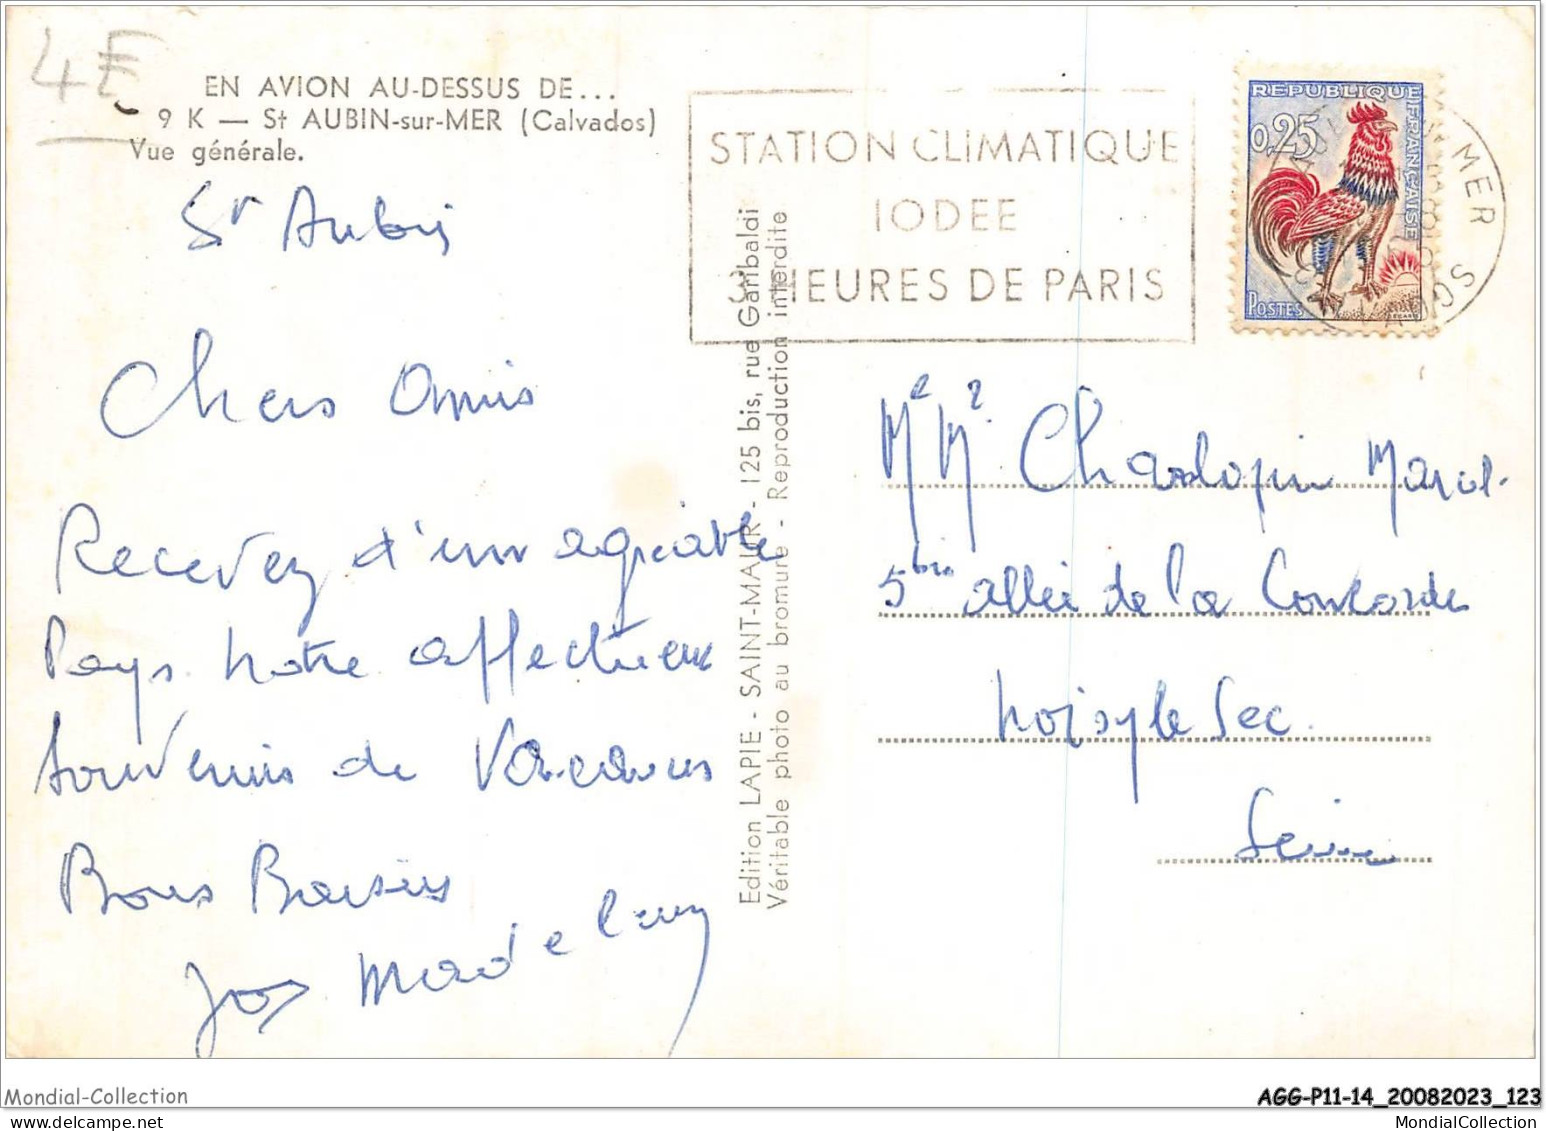 4E
EN AVION AU-DESSUS DE...
9 K — St AUBIN-sur-MER (Calvados)
Vue générale.
St Aubin
Chers Amis
Recevez d'un agréable
Pays notre affectueux
Souvenirs de Vacances
Bons Baisers
STATION CLIMATIQUE
IODEE
3 HEURES DE PARIS
REPUBLIQUE FRANÇAISE
0,25
POSTES
MER
Edition LAPIE - SAINT-MAUR - 125 bis, rue Garibaldi
Véritable photo au bromure - Reproduction interdite
5 bis allée de la Concorde
Noisy le Sec
Seine
Mondial-Collection
AGG-P11-14_20082023_123
MondialCollection